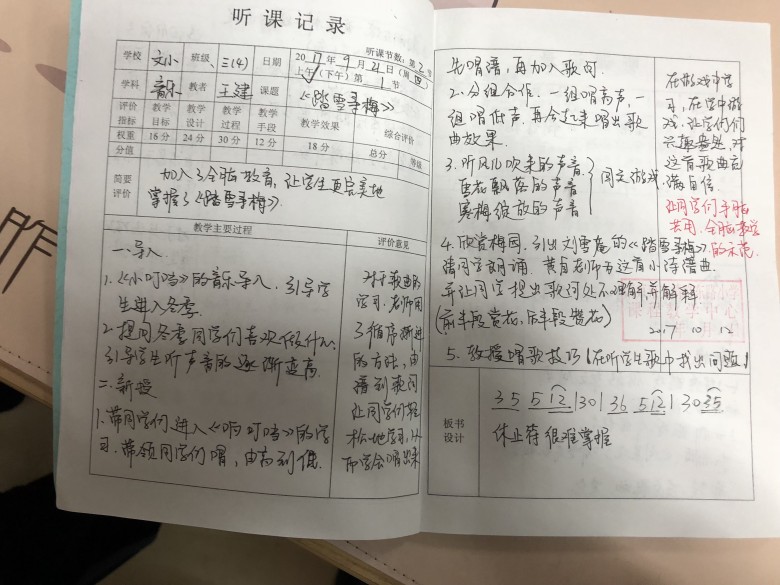 听课记录
听课节数:第2节
学校 文小 班级 三(4) 日期 2017年9月21日(周四)
上午(下午)第1节
学科 音乐 教者 王建 课题 《踏雪寻梅》
评价指标 教学目标 教学设计 教学过程 教学手段 教学效果 综合评价
权重 16分 24分 30分 12分 18分 总分 等级
分值
简要评价
加入了全脑教育,让学生更完美地
掌握了《踏雪寻梅》.
教学主要过程
一.导入
1.《小叮当》的音乐导入,引导学
生进入冬季.
2.提问冬季同学们喜欢做什么,
引导学生听声音的逐渐变高.
二.新授
1.带同学们进入《响叮当》的学
习.带领同学们唱,由高到低.
评价意见
对于歌曲的
学习,老师用
了循序渐进
的方法,由
谱到歌词
让同学们轻
松地学习,从
而学会唱出来
先唱谱,再加入歌词.
2.分组合作.一组唱高声,一
组唱低声.再合起来唱出歌
曲效果.
3.听风儿吹来的声音
雪花飘落的声音
寒梅绽放的声音
图卡游戏.
4.欣赏梅园,引出刘雪庵的《踏雪寻梅》.
请同学朗诵.
并让同学提出歌词处不理解并解释
(前半段赏花,后半段赞花)
5.教授唱歌技巧(在听学生歌中找出问题)
在游戏中学
习,在学中游
戏.让学生们
兴趣盎然.对
这首歌曲充
满自信.
让同学们手脑
共用,全脑教学
的示范.
2017 10 12
板书设计
35 512|30|36 512|3035
休止符很难掌握